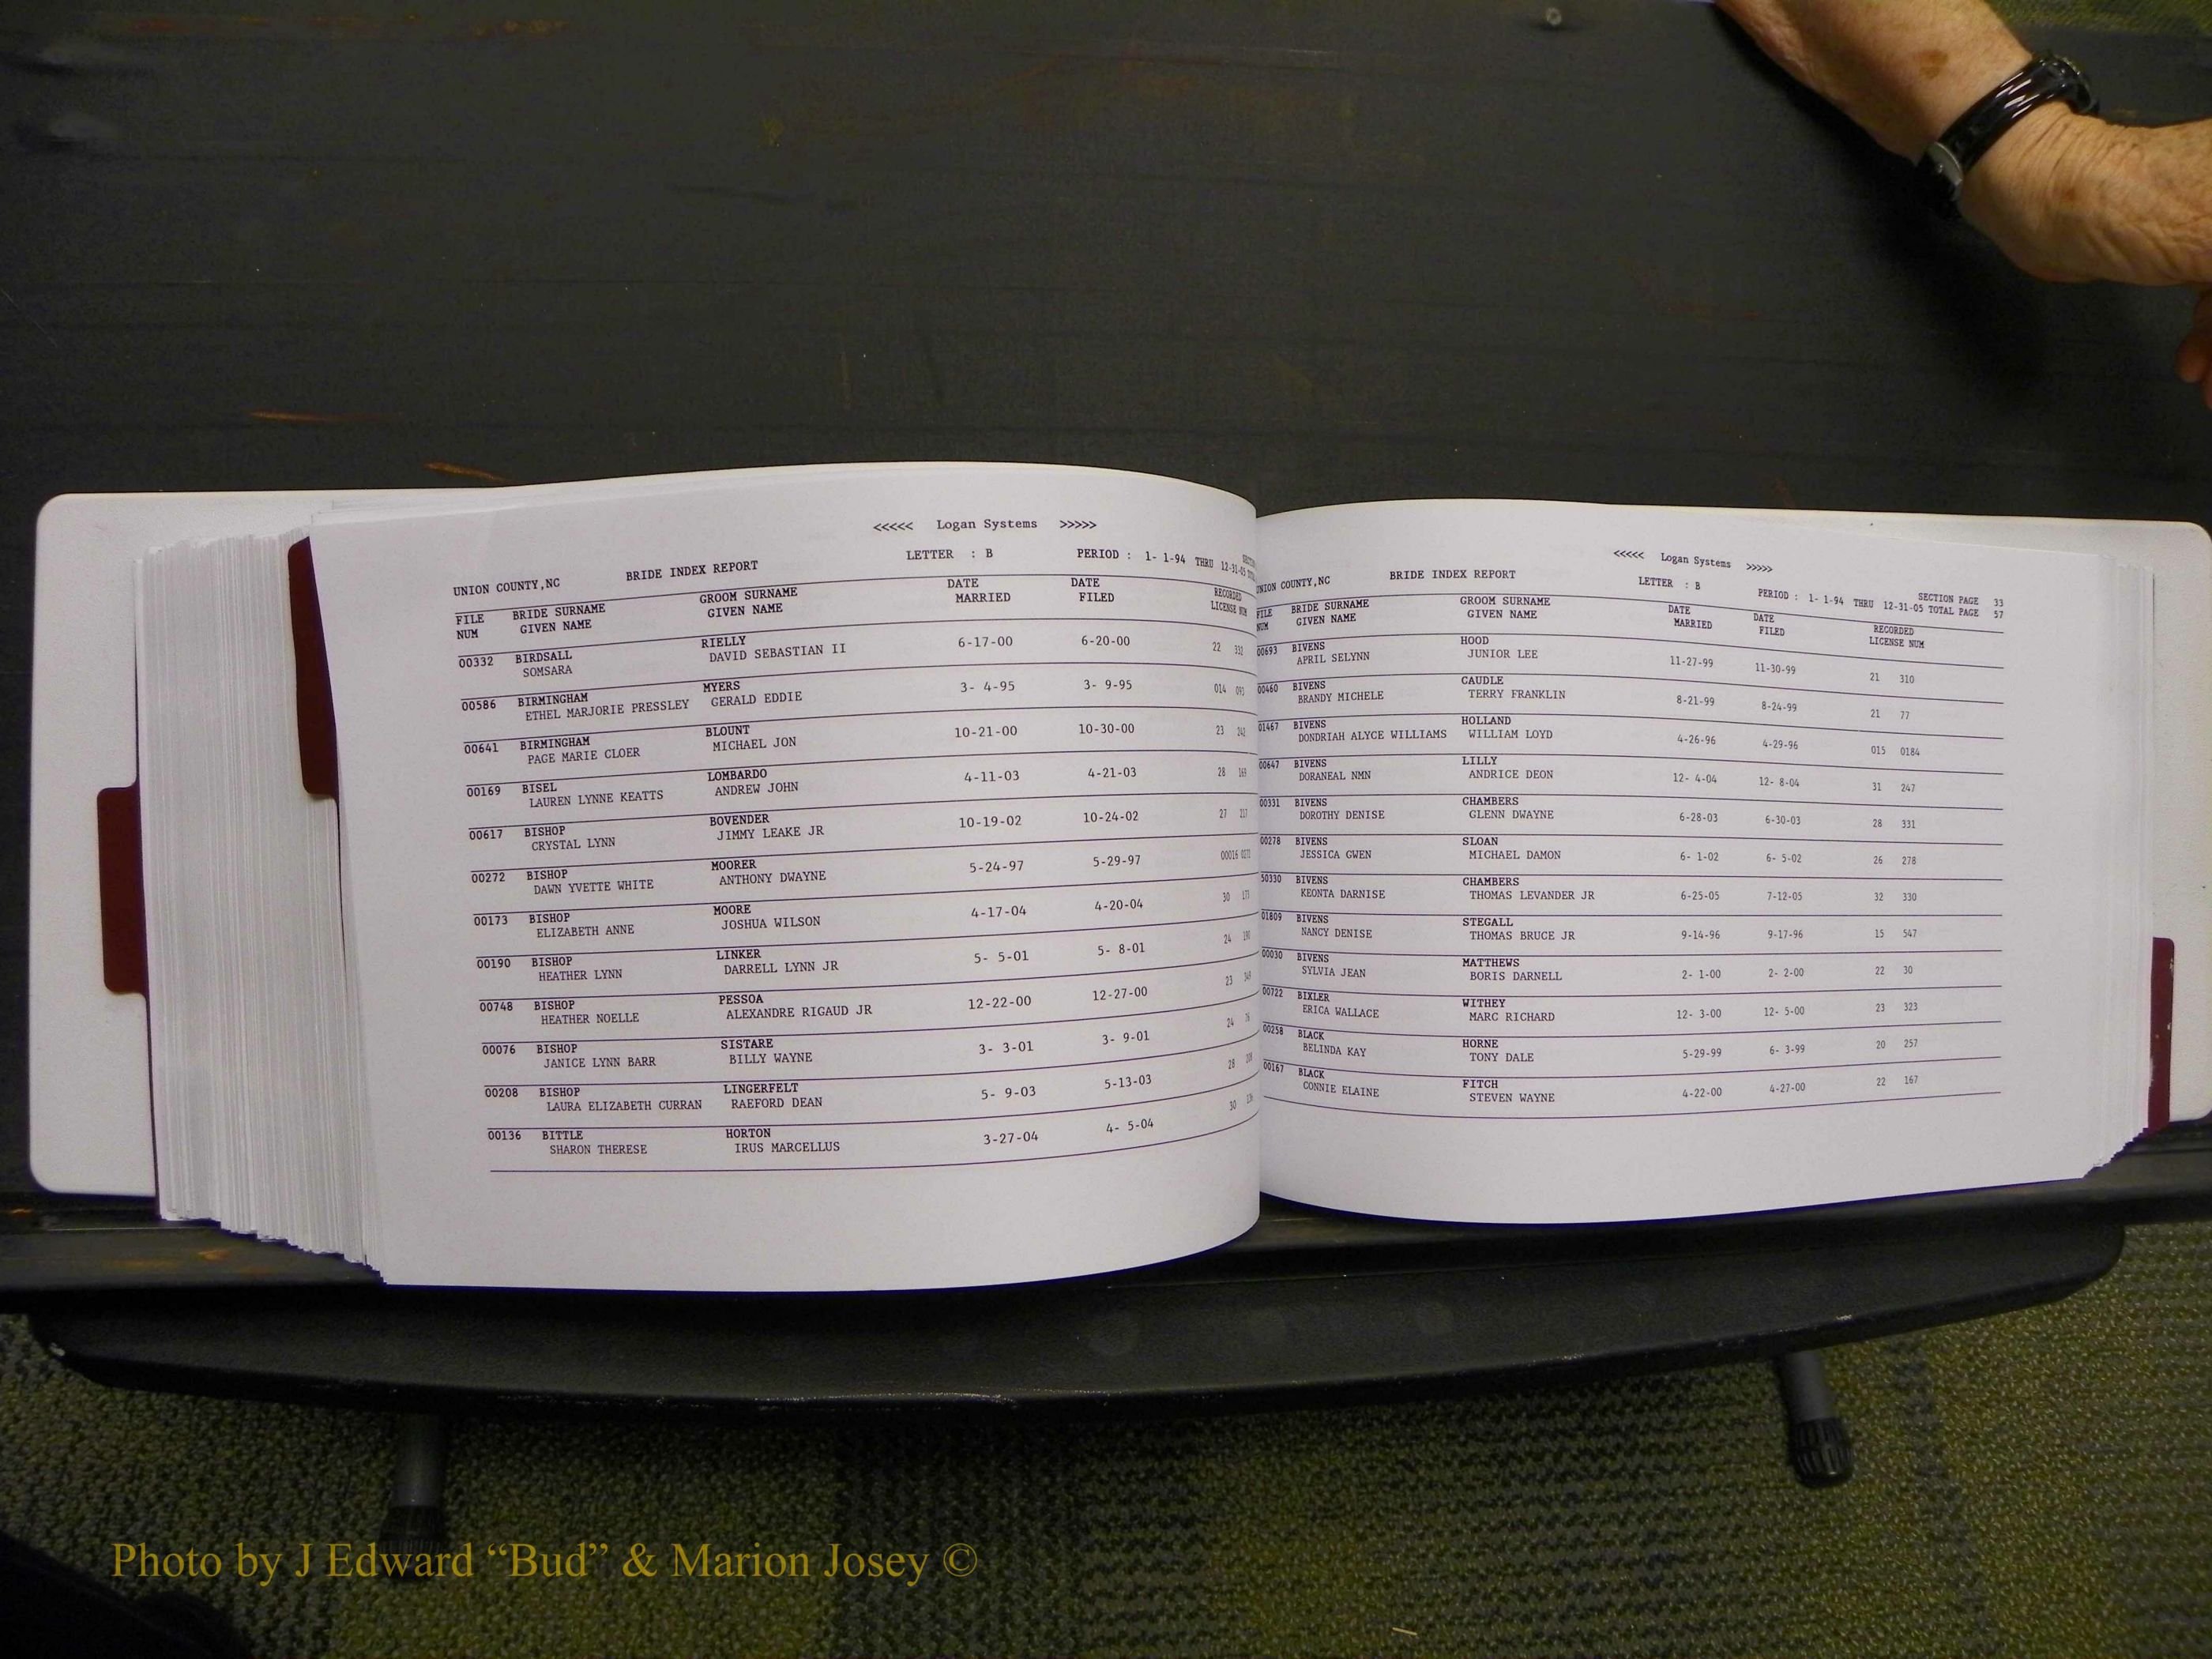 <<<<< Logan Systems >>>>>
UNION COUNTY,NC BRIDE INDEX REPORT LETTER : B PERIOD : 1- 1-94 THRU 12-31-05
FILE BRIDE SURNAME GROOM SURNAME DATE DATE RECORDED
NUM GIVEN NAME GIVEN NAME MARRIED FILED LICENSE NUM
00332 BIRDSALL RIELLY 6-17-00 6-20-00 22 332
SOMSARA DAVID SEBASTIAN II
00586 BIRMINGHAM MYERS 3- 4-95 3- 9-95 014
ETHEL MARJORIE PRESSLEY GERALD EDDIE
00641 BIRMINGHAM BLOUNT 10-21-00 10-30-00 23
PAGE MARIE CLOER MICHAEL JON
00169 BISEL LOMBARDO 4-11-03 4-21-03 28 169
LAUREN LYNNE KEATTS ANDREW JOHN
00617 BISHOP BOVENDER 10-19-02 10-24-02 27
CRYSTAL LYNN JIMMY LEAKE JR
00272 BISHOP MOORER 5-24-97 5-29-97 00016
DAWN YVETTE WHITE ANTHONY DWAYNE
00173 BISHOP MOORE 4-17-04 4-20-04 30
ELIZABETH ANNE JOSHUA WILSON
00190 BISHOP LINKER 5- 5-01 5- 8-01 24 190
HEATHER LYNN DARRELL LYNN JR
00748 BISHOP PESSOA 12-22-00 12-27-00 23
HEATHER NOELLE ALEXANDRE RIGAUD JR
00076 BISHOP SISTARE 3- 3-01 3- 9-01 24 76
JANICE LYNN BARR BILLY WAYNE
00208 BISHOP LINGERFELT 5- 9-03 5-13-03 28 208
LAURA ELIZABETH CURRAN RAEFORD DEAN
00136 BITTLE HORTON 3-27-04 4- 5-04 30
SHARON THERESE IRUS MARCELLUS
<<<<< Logan Systems >>>>>
UNION COUNTY,NC BRIDE INDEX REPORT LETTER : B SECTION PAGE 33
PERIOD : 1- 1-94 THRU 12-31-05 TOTAL PAGE 57
FILE BRIDE SURNAME GROOM SURNAME DATE DATE RECORDED
NUM GIVEN NAME GIVEN NAME MARRIED FILED LICENSE NUM
00693 BIVENS HOOD 11-27-99 11-30-99 21 310
APRIL SELYNN JUNIOR LEE
00460 BIVENS CAUDLE 8-21-99 8-24-99 21 77
BRANDY MICHELE TERRY FRANKLIN
01467 BIVENS HOLLAND 4-26-96 4-29-96 015 0184
DONDRIAH ALYCE WILLIAMS WILLIAM LOYD
00647 BIVENS LILLY 12- 4-04 12- 8-04 31 247
DORANEAL NMN ANDRICE DEON
00331 BIVENS CHAMBERS 6-28-03 6-30-03 28 331
DOROTHY DENISE GLENN DWAYNE
00278 BIVENS SLOAN 6- 1-02 6- 5-02 26 278
JESSICA GWEN MICHAEL DAMON
50330 BIVENS CHAMBERS 6-25-05 7-12-05 32 330
KEONTA DARNISE THOMAS LEVANDER JR
01809 BIVENS STEGALL 9-14-96 9-17-96 15 547
NANCY DENISE THOMAS BRUCE JR
00030 BIVENS MATTHEWS 2- 1-00 2- 2-00 22 30
SYLVIA JEAN BORIS DARNELL
00722 BIXLER WITHEY 12- 3-00 12- 5-00 23 323
ERICA WALLACE MARC RICHARD
00258 BLACK HORNE 5-29-99 6- 3-99 20 257
BELINDA KAY TONY DALE
00167 BLACK FITCH 4-22-00 4-27-00 22 167
CONNIE ELAINE STEVEN WAYNE
Photo by J Edward “Bud” & Marion Josey ©